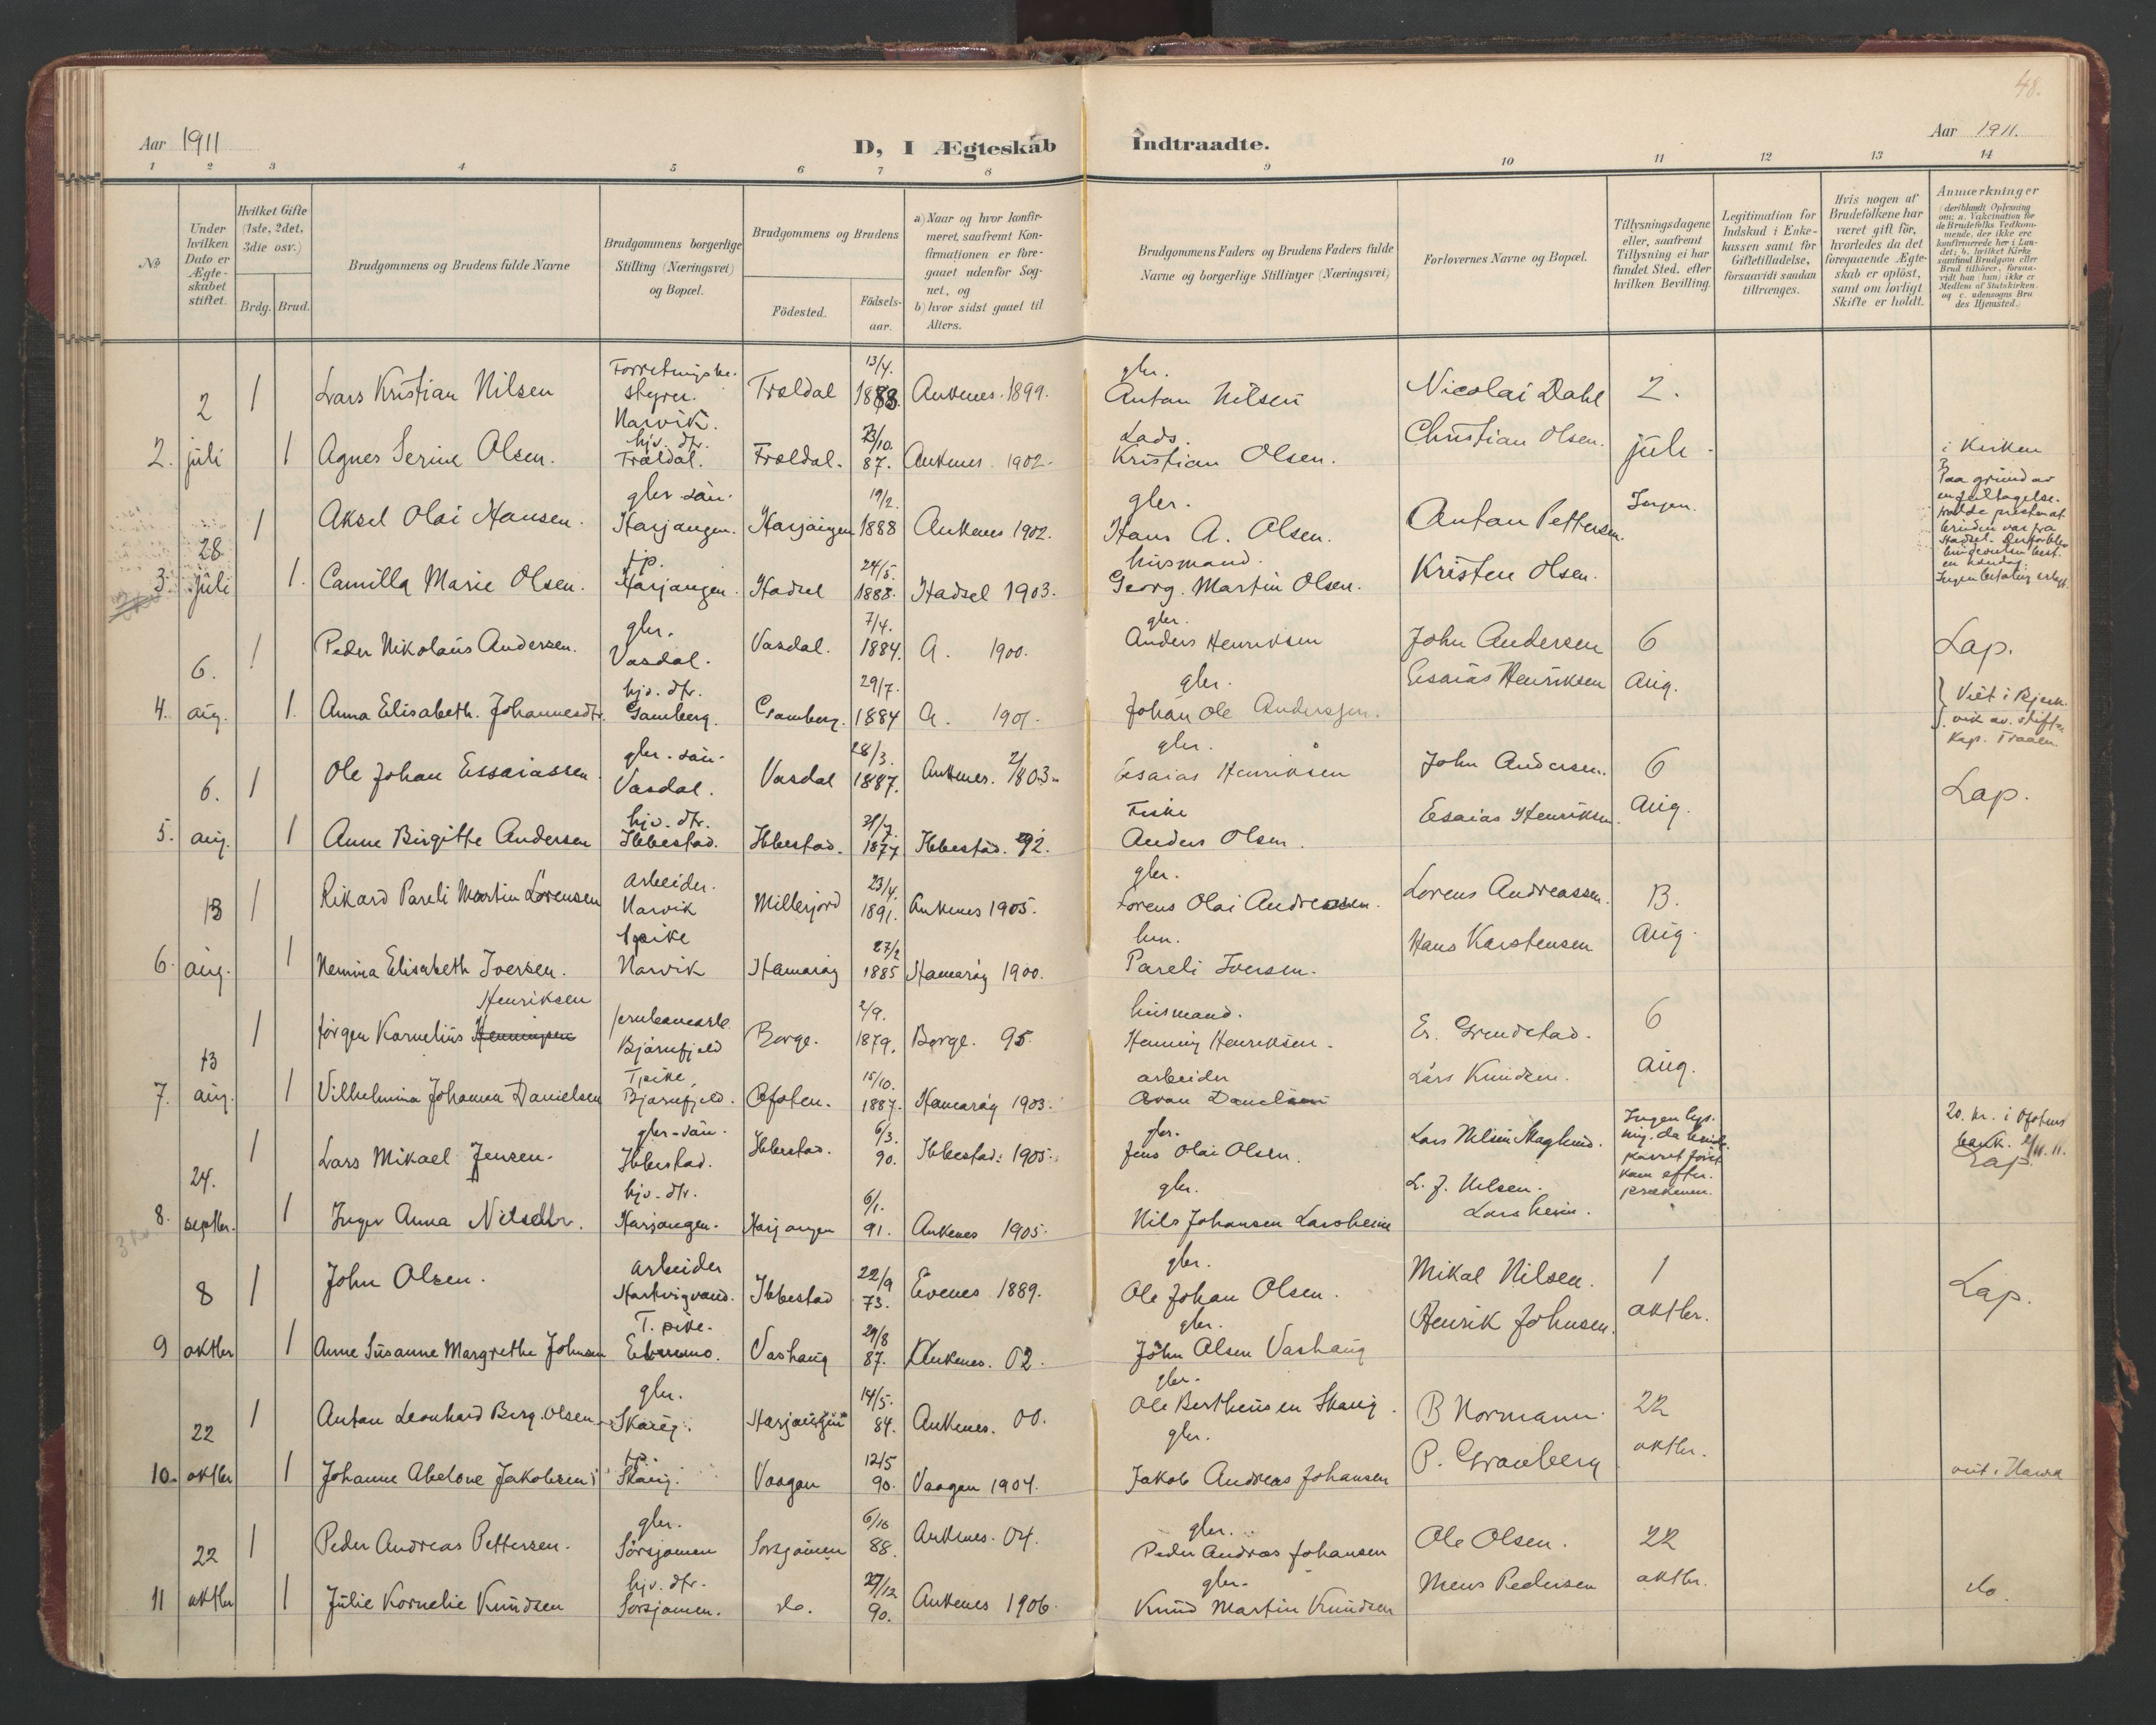 48.
Aar 1911
D, I Ægteskab Indtraadte.
Aar 1911.
1 2 3 4 5 6 7 8 9 10 11 12 13 14
No
Under hvilken Dato er Ægteskabet stiftet.
Hvilket Gifte (1ste, 2det, 3die osv.)
Brdg. Brud.
Brudgommens og Brudens fulde Navne
Brudgommens borgerlige Stilling (Næringsvei) og Bopæl.
Brudgommens og Brudens
Födested.
Födselsaar.
a) Naar og hvor konfirmeret, saafremt Konfirmationen er foregaaet udenfor Sognet, og
b) hvor sidst gaaet til Alters.
Brudgommens Faders og Brudens Faders fulde Navne og borgerlige Stillinger (Næringsvei)
Forlovernes Navne og Bopæl.
Tillysningsdagene eller, saafremt Tillysning ei har fundet Sted, efter hvilken Bevilling.
Legitimation for Indskud i Enkekassen samt for Giftetilladelse, forsaavidt saadan tiltrænges.
Hvis nogen af Brudefolkene har været gift för, hvorledes da det foregaaende Ægteskab er oplöst, samt om lovligt Skifte er holdt.
Anmærkninger (deriblandt Oplysning om: a. Vakcination for de Brudefolks Vedkommende, der ikke ere konfirmerede her i Landet; b. hvilket Kirkesamfund Brudgom eller Brud tilhörer, forsaavidt han (hun) ikke er Medlem af Statskirken, og c. udensogns Brudes Hjemsted.)
2 1 Lars Kristian Nilsen Forretningsbestyrer. Narvik. Traldal 13/4. 1883. Ankenes. 1899. gbr. Anton Nilsen Nicolai Dahl 2.
2. juli 1 Agnes Serine Olsen. hjv. dtr. Traldal. Traldal. 23/10. 87. Ankenes. 1902. Lads. Kristian Olsen. Christian Olsen. juli i Kirken
28 1 Aksel Olai Hansen. gbr-sön. Harjangen. Harjangen 19/2. 1888 Ankenes 1902. gbr. Hans A. Olsen. Antan Pettersen. Ingen. Paa grund av en feiltagelse
3. juli 1. Camilla Marie Olsen. tp. Harjangen. Hadsel 24/5. 1888. Hadsel 1903. husmand. Georg. Martin Olsen. Kristen Olsen.
6. 1 Peder Nikolaus Andersen. gbr. Vasdal. Vasdal. 7/4. 1884. A. 1900. gbr. Anders Henriksen John Andersen 6 Lap.
4. aug. 1. Anna Elisabeth. Johannesdtr. hjv. dtr. Gamberg. Gamberg. 29/7. 1884 A. 1901. gbr. Johan Ole Anderssen. Esaias Henriksen aug. Viet i Bjerkvik av. stifts Kap. Traaen.
6. 1 Ole Johan Essaiassen gbr.-sön. Vasdal. Vasdal 28/3. 1887. Ankenes. 03. gbr. Esaias Henriksen John Andersen. 6 Lap.
5. aug. 1 Anne Birgitte Andersen hjv. dtr. Ibbestad. Ibbestad. 31/7. 1877 Ibbestad. 92. Fiske Anders Olsen. Esaias Henriksen. aug.
13 1 Rikard Pareli Martin Lorensen arbeider. Narvik Millerjord 23/4. 1891. Ankenes 1905. gbr. Lorens Olai Andreassen. Lorens Andreassen. 13.
6. aug. 1 Nemina Elisabeth Iversen. tpike Narvik Hamaröy 27/2 1885 Hamaröy 1900. Pareli Iversen. Hans Karstensen aug.
13 1 Jörgen Kornelius Henriksen jernbanearb. Björnfjeld Borge. 2/9. 1879. Borge. 95. husmand. Henning Henriksen. Er. Grundstad. 6
7. aug. 1 Vilhelmina Johanna Danielsen Tpike, Bjørnfjeld. Ofoten. 15/10. 1887. Hamaröy 1903. arbeider Danielsen Lars Knudsen. aug.
24. 1 Lars Mikael Jensen. gbr-sön. Ibbestad. Ibbestad. 6/3. 90. Ibbestad: 1905. gbr. Jens Olai Olsen. Lars Nilsen Skoglund. Ingen lysning. da brudeparret først kom efter prækenen. 20. kr. i Ofotens bank. Lap.
8. septbr. 1 Inger Anna Nilsdtr. hjv. dtr. Harjangen. Harjangen 6/1. 91. Ankenes 1905. gbr. Nils Johansen Larsheim L. J. Nilsen. Larsheim.
8 1 John Olsen. arbeider Hartvigvand. Ibbestad 22/9 73. Evenes 1889. gbr. Ole Johan Olsen. Mikal Nilsen. 1 Lap.
9 oktbr 1 Anne Susanne Margrethe Johnsen T. pike. Elvemo. Vashaug 29/8 87. Ankenes. 02. gbr. John Olsen Vashaug Henrik Johnsen. oktbr.
22 1 Antan Leonhard Berg. Olsen gbr. Skaug. Harjangen 14/5. 84. Ankenes. 00. gbr. Ole Bertheusen Skaug. B Normann. 22
10. oktbr 1 Johanne Abelone Jakobsen tp. Skaug. Vaagan 12/5 90. Vaagan 1904. gbr. Jakob Andreas Johansen P. Granberg oktbr.
22 1 Peder Andreas Pettersen. gbr. Sörsjomen Sorsjomen 6/10 88. Ankenes. 04. gbr. Peder Andreas Johansen Ole Olsen. 22
11 oktbr 1 Julie Kornelie Knudsen hjv. dtr. Sorsjomen. do. 27/12 90. Ankenes 1906. gbr. Knud Martin Knudsen Mens Pedersen oktbr. do.